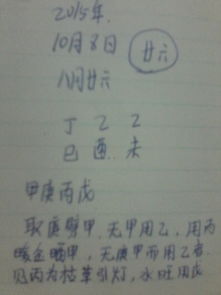 2015年.
10月8日 廿六
八月廿六
丁 乙 乙
巳 酉 未
甲庚丙戊
取庚劈甲,无甲用乙,用丙
暖金晒甲,无庚甲而用乙者.
见丙为枯草引灯,水旺用戊